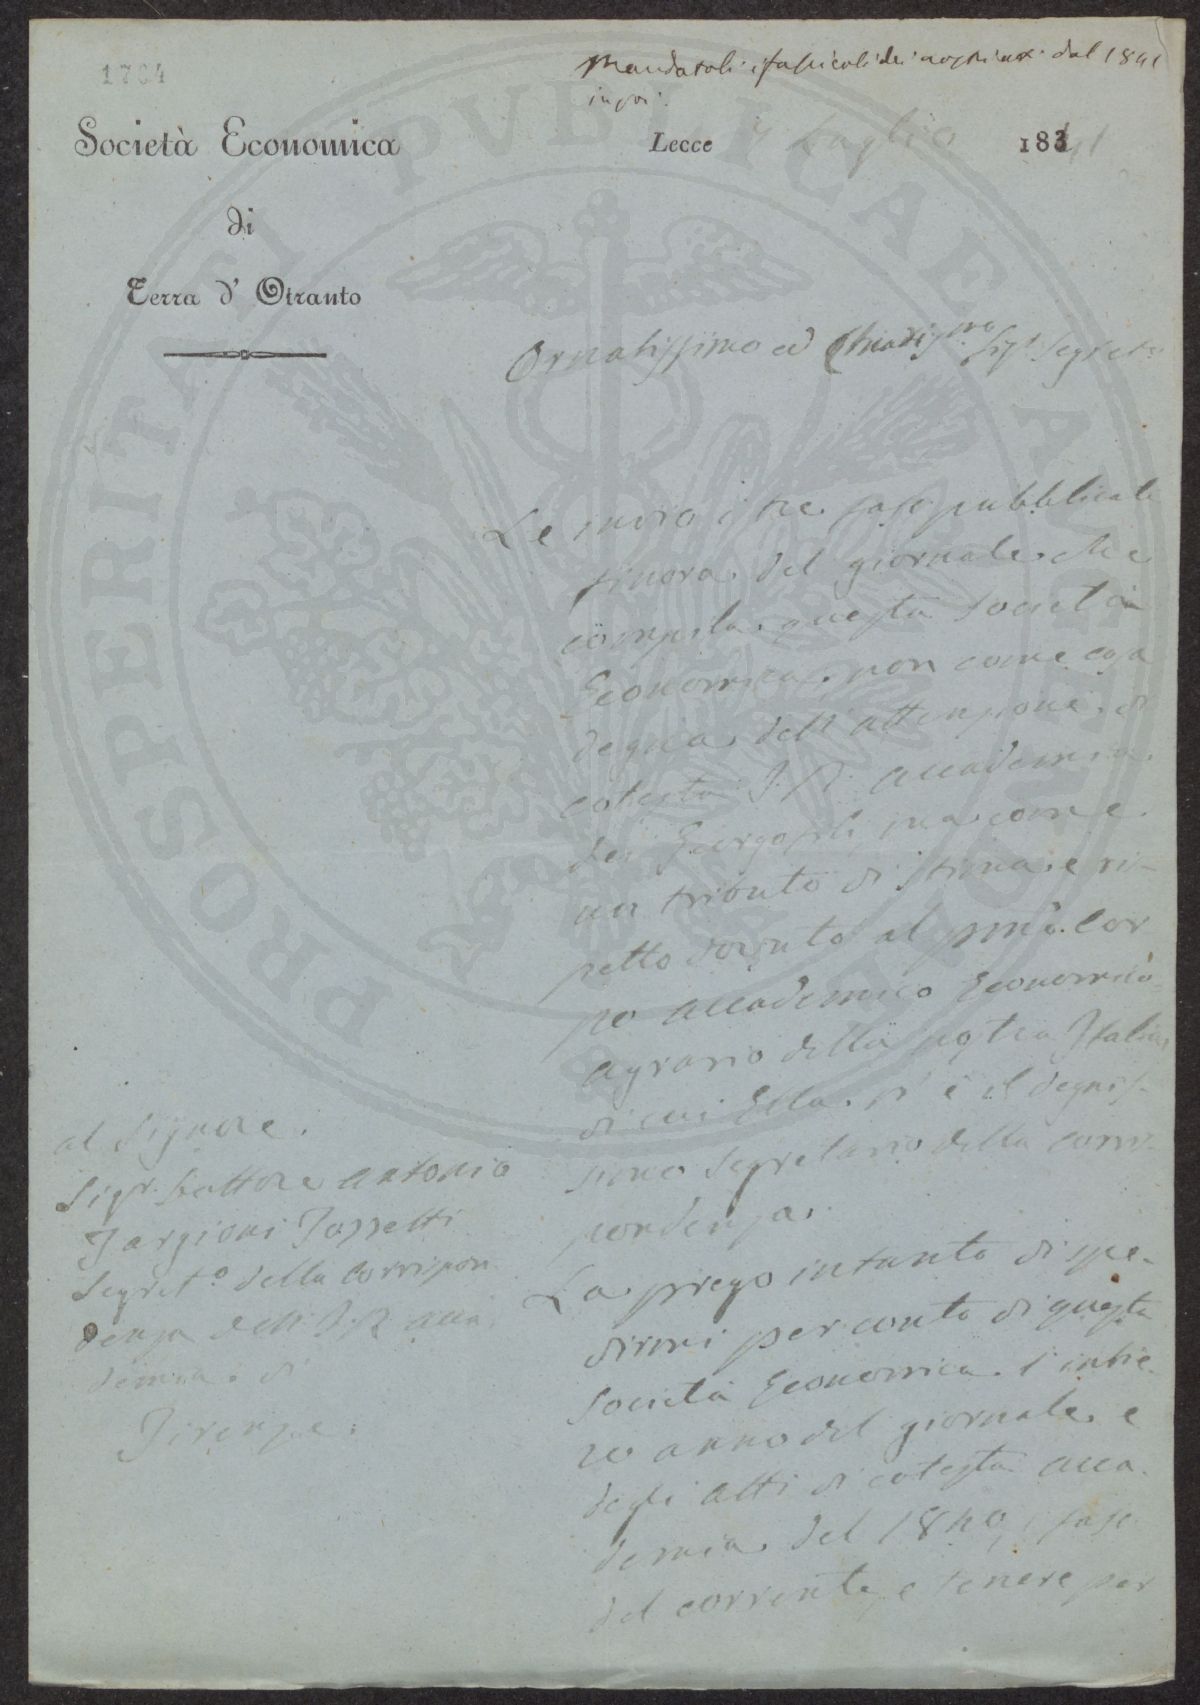 1704
Mandatoli i fascicoli dei nostri atti dal 1841
in poi.
Società Economica
di
Terra d' Otranto
Lecce 4 Luglio 1841
Ornatissimo ed Chiarissimo Sigr. Segreto
Le invio i tre fasc. pubblicati
finora del giornale che
compila questa Società
Economica, non come cosa
degna dell'attenzione di
cotesta I. R. Accademia
dei Georgofili, ma come
un tributo di stima e ri-
spetto dovuto al primo Cor
po accademico Economico
agrario della nostra Italia,
di cui Ella n'è il degnis-
simo Segretario della corris-
pondenza.
La prego intanto di spe-
dirmi per conto di questa
Società Economica l'intie-
ro anno del giornale e
degli atti di cotesta acca-
demia del 1840, i fasc.
del corrente, e tenere per
al Signore
Sigr. Dottore Antonio
Targioni Tozzetti
Segreto della corrispon
denza dell'I. R. Acca
demia di
Firenze.
PROSPERITATI PVBLICAE AVGENDAE